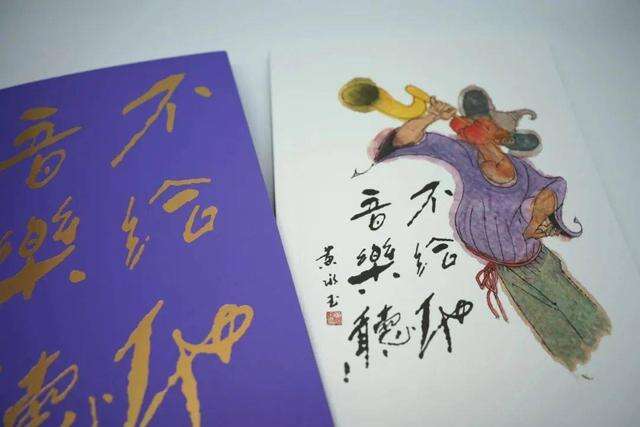 不给他
音樂聽
不给他
音樂聽！
黄永玉